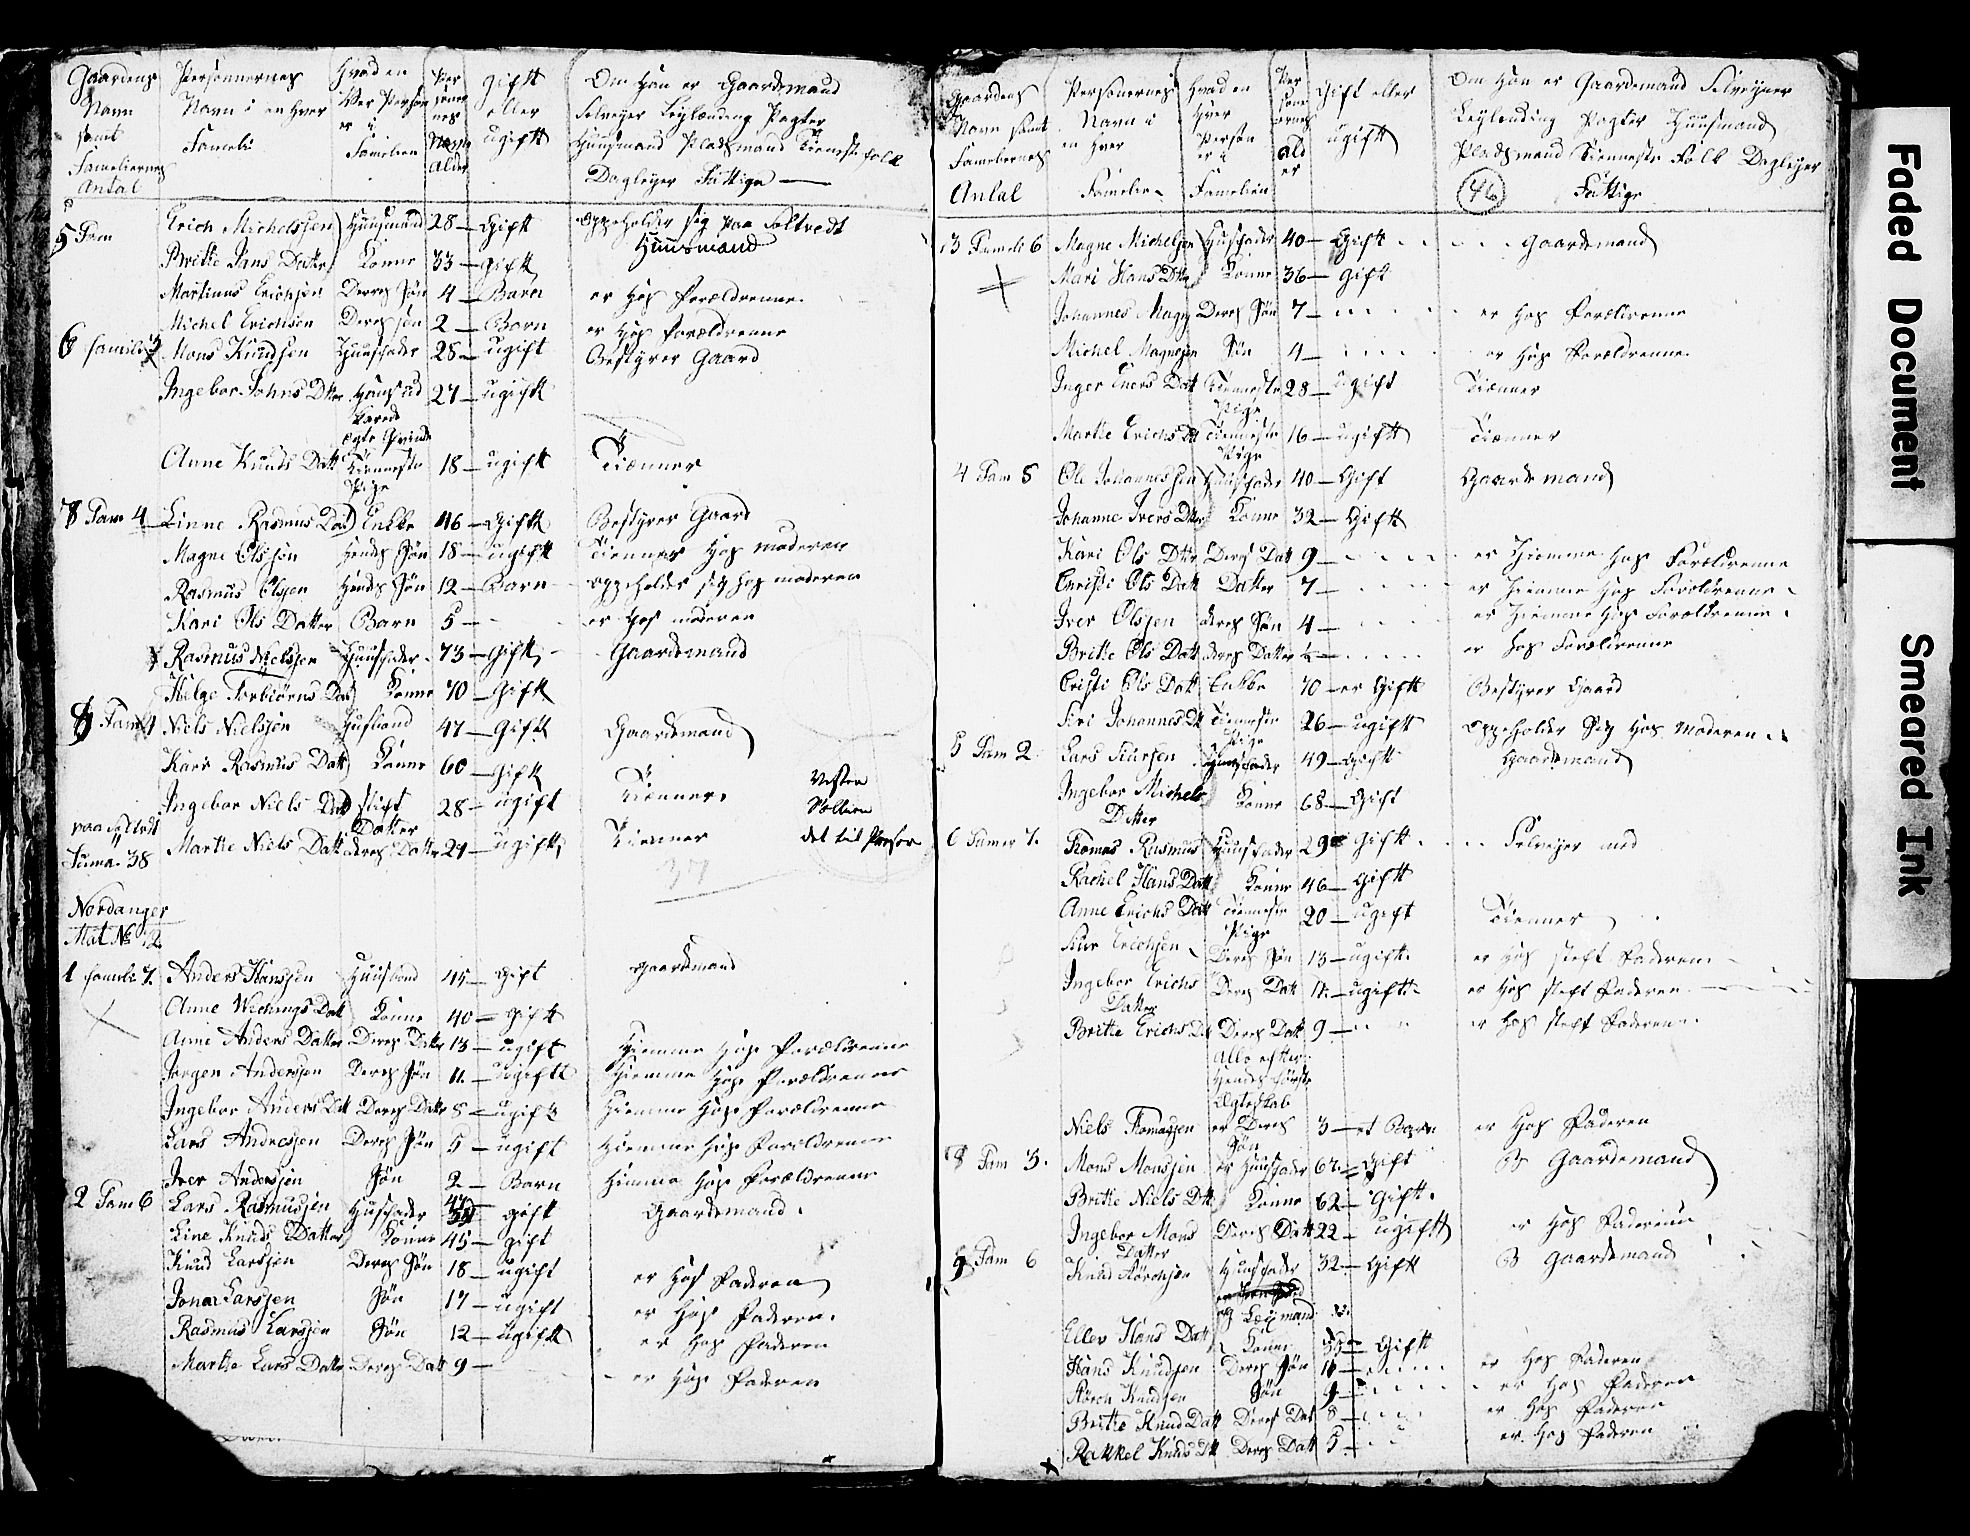 Gaardens Navn samt Fameliernes Antal | Personnernes Navn i en hver Fameli | Hvad en hver Person er i Familien | Per sonernes Alder | Gift eller ugift | Om Han er Gaardemand Selveyer Leylænding Pagter Huusmand Pladsmand Tieneste folk Dagleyer Fattige
5 Fam Erich Michelssen Huusmand 28 - Gift Oppeholder sig paa Huusmand
Britte Jans Datter Konne 33 - gift
Martinus Erichsen Deres Søn 4 - Barn er hos Forældrenne
Michel Erichsen Deres søn 2 - Born er hos forældrenne
6 familie Mons Knudsen Huusfader 28 - ugift Bestyrer Gaard
Ingebor Johns Dtter 27 - ugift
Anne Knuds Datt Tienneste Pige 18 - ugift Tienner
Fam 4 Linne Rasmus Enke 46 - Gift Bestyrer Gaard
Magne Olssøn Hendes Søn 18 - ugift Tienner hos moderen
Rasmus Olssen Hendes Søn 12 - Barn oppeholder sig hos moderen
Kari Ols Datter Barn 5 - er hos moderen
Rasmus Nielssen Huusfader 73 - Gift Gaardemand
Helge Torbiørns Konne 70 - Gift
Fam 4 Niels Nielssøn Husbond 47 - Gift Gaardemand
Kari Rasmus Datt Konne 60 - Gift
Ingebor Niels Datt Datter 28 - ugift Tienner
Marthe Niels Datt deres Datter 24 - ugift Tienner
Suma 38
37
Nordanger
Mat No 12
1 famili 7 Anders Hanssen Huusbond 45 - gift gaardemand
Anne Datt Konne 40 - gift
Anne Anders Datter Deres Datter 13 - ugift Hiemme Hoss Forældrenne
Jørgen Anderssen Deres Søn 11 - ugift Hiemme Hoss Forældrenne
Ingebor Anders Datt Deres Datter 8 - ugift Hiemme Hoss Forældrenne
Lars Andressen Deres Søn 5 - ugift Hiemme Hoss Forældrenne
Iver Anderssen Søn 2 - Barn Hiemme Hoss Forældrenne
2 Fam 6 Lars Rasmussen Husfader gift Gaardemand
Line Knuds Datter Konne 45 - gift
Knud Larssen Deres Søn 18 - ugift er Hos Faderen
Jonas Larssen Søn 17 - ugift er Hos Faderen
Rasmus Larssen Søn 12 - ugift er Hos Faderen
Marthe Lars Datter Deres Datt 9 - er Hos Faderen
Gaardens Navn samt Fameliernes Antal | Personernes Navn i en hver Famelie | Hvad en hver Person er i Familien | Per sonernes alder | Gift eller ugift | Om Han er Gaardemand Selveyer Leylending Pagter Huusmand Pladsmand Tienneste Folk Dagleyer Fattige
46
3 Fameli 6 Magne Michelsen Husfader 40 - Gift Gaardemand
Mari Hans Dtter Konne 36 - gift
Johannes Magn Deres Søn 7 - er Hos Forældrenne
Michel Magnesen Søn 4 - er Hos Forældrenne
Inger Datt Tienneste Pige 28 - ugift Tienner
Marthe Erichs Dt Tienneste Pige 16 - ugift Tienner
4 Fam 8 Ole Johannessen Huusfader 40 - Gift Gaardemand
Johanne Ivers Dtter Konne 32 - Gift
Kari Ols Dtter Deres Datt 9 - er Hiemme hos Forældrenne
Christi Ols Datt Datter 7 - er Hiemme Hos Forældrenne
Iver Olssen deres Søn 4 - er Hiemme Hos Forældrenne
Britte Ols Datt deres Datter - er hos Forældrenne
Cristi Ols Datt Enke 70 - er Gift Bestyrer Gaard
Siri Johannes Dt Tienneste Pige 26 - ugift oppeholder Sig Hos Moderen
5 Fam 2 Lars Siurssen Huusfader 49 - Gift Gaardemand
Ingebor Michels Dtter Konne 68 - Gift
6 Fam 7 Thomas Rasmus Huusfader 29 gift Selveyer
Rachel Hans Datt Konne 46 - gift
Anne Erichs Datt Tienneste Pige 20 - ugift Tienner
Siur Erichsen Deres Søn 13 - ugift er Hos steff Faderen
Ingebor Erichs Datter Deres Datt 11 - ugift er Hos steff Faderen
Britte Erichs Dt Deres Datt 9 - er Hos steff Faderen
Alle efter Hendes første Ægteskab
Niels Thomassen er Deres Søn 3 - et Barn er Hos Faderen
Fam 3 Mons Monssen er Huusfader 67 - Gift Gaardemand
Britte Niels Dtt Konne 62 - Gift
Ingebor Mons Datter Deres Datt 22 - ugift er Hos Faderenn
Fam 6 Knud Huusfader 32 - Gift Gaardemand
Eller Hans Datt Konne Gift
Hans Knudsen Deres Søn 11 - er Hos Faderen
Knudsen Søn 9 - er Hos Faderen
Britte Knud Datt Deres Dat 8 - er Hos Faderen
Rakkel Knuds Dt Deres Datt 5 - er Hos Faderen
Faded Document
Smeared Ink